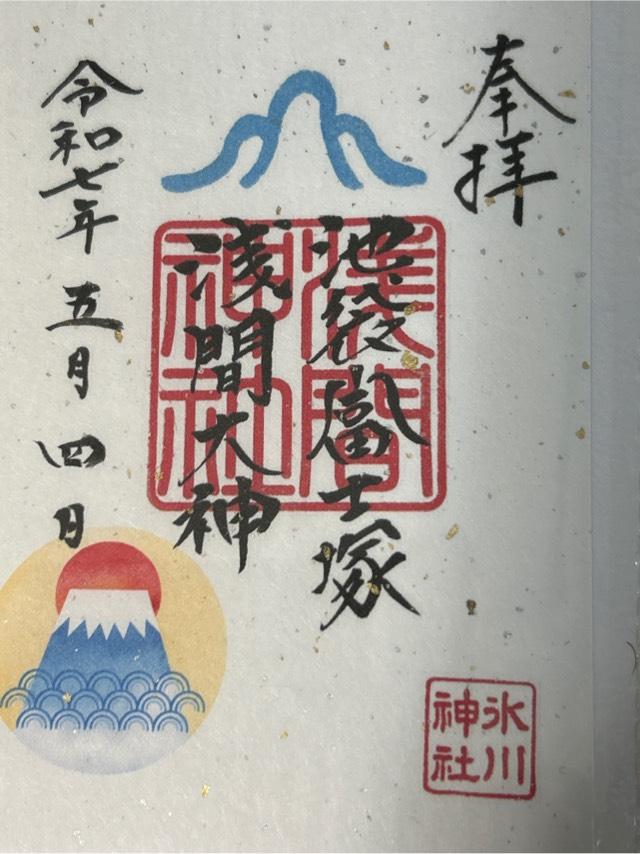 奉拝
池袋富士塚
浅間大神
浅間神社
令和七年五月四日
氷川神社